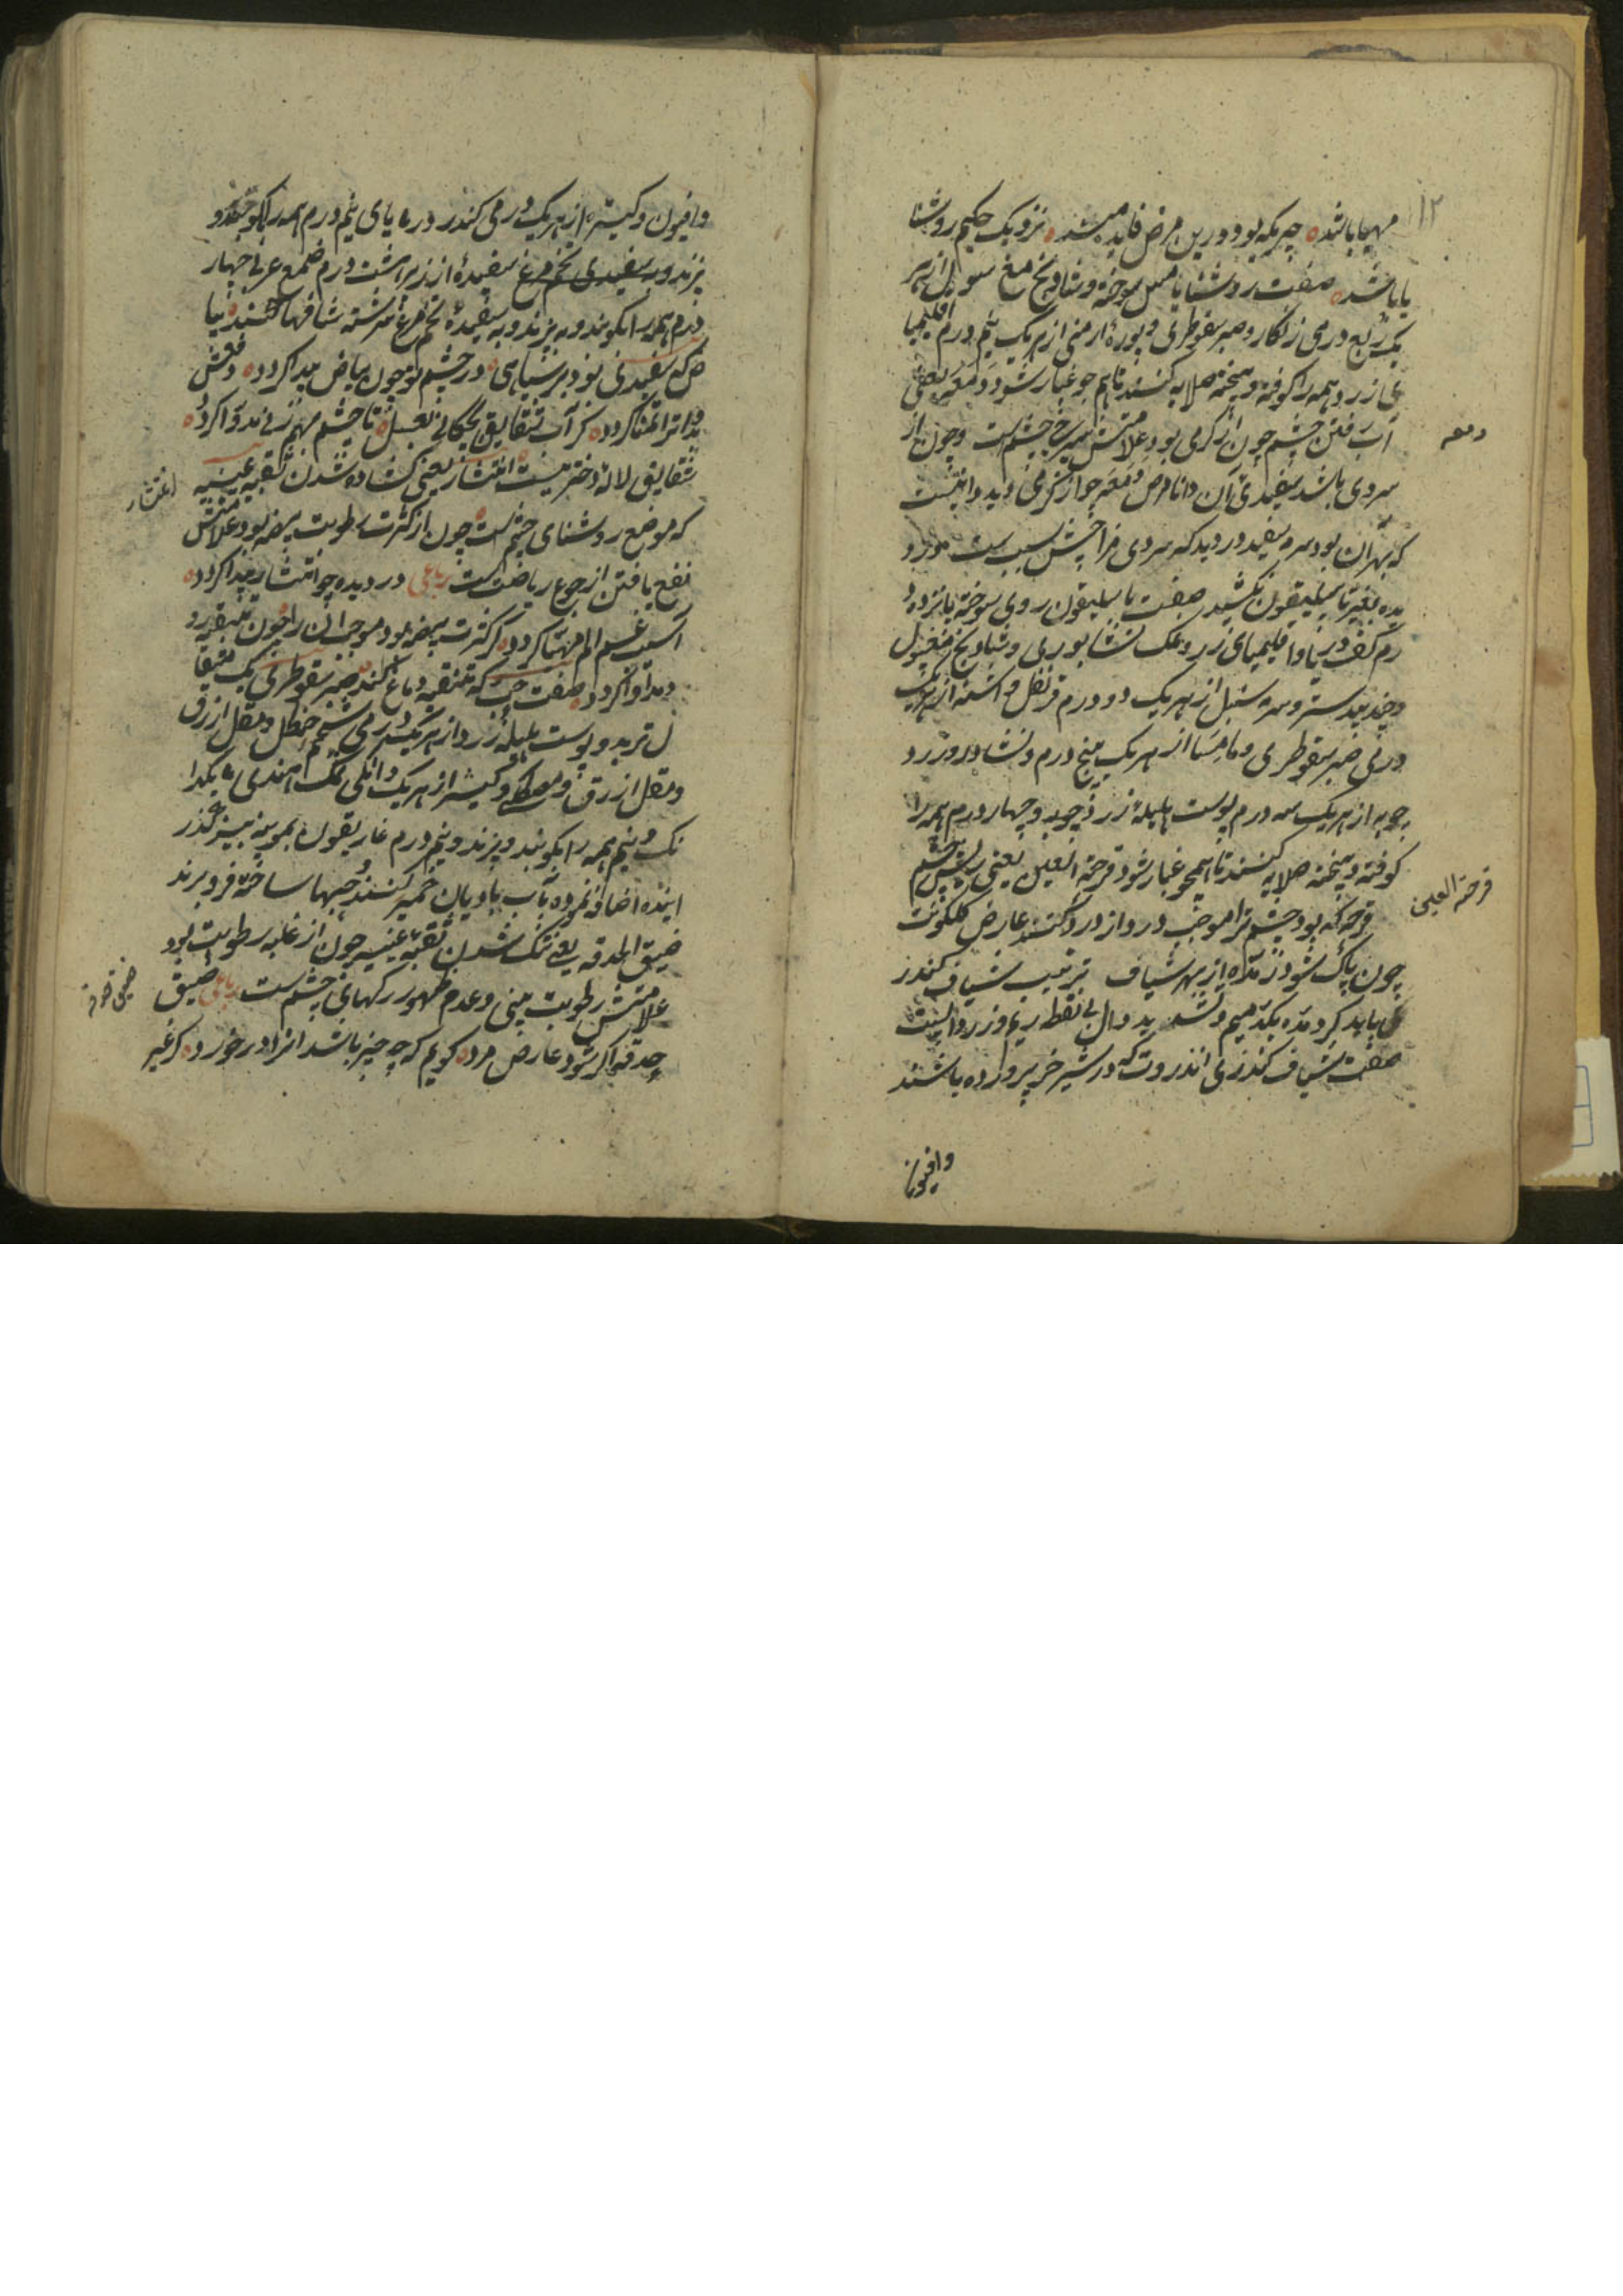 ۱۲
مهیا باشد چیزیکه بود درین مرض فایدمند نزدیک حکیم روشنا
یا باشد صفت روشنایا مس سوخته و شادنج مغسول از هر
یک ربع درمی زنکار و صبر سقوطری و بوره ارمنی از هر یک نیم درم اقلیمیا
ی زر دهمه را کوفته و بیخته صلایه کنند تا هم چو غبار شود و دمعه یعنی
دمعه
آب رفتن چشم چون از کرمی بود علامتش سرخی چشم است و چون از
سردی باشد سفیدی آن دانا مرض دمعه چو از کرمی دید دانست
که بهر آن بود سرمه سفید ور دید که سردی مزاجش سبب است
یده بغیر باسلیقون نکشید صفت باسلیقون روی سوخته پانزده د
رم کف دریا و اقلیمیای زر و نمک نشابوری و شادنج مغسول
و جندبیدستر و سرمه سنبل از هر یک دو درم قرنفل و اشنه از هر یک
درمی صبر سقوطری و مامیسا از هر یک پنج درم و نشادر و زرد
چوبه از هر یک سه درم پوست هلیله زرد چوبه و چهار درم همه را
کوفته و بیخته صلایه کنند تا همچو غبار شود قرحة العین یعنی ریش چشم
قرحة العین
قرحه که بود چشم ترا موجب درد از درد کنند عارض کلکونت
چون پاک شود ز مدّه از بهر شیاف ترتیب شیاف کندر
ی باید کرد مدّه بکد میم و تشدید دال بی نقطه ریم و زرداابست
صفت شیاف کندری انذروت که در شیر خر پرورده باشند
وافیون
وافیون و کتیره از هر یک درمی کندر در یا یای نیم درم همه را
بزند و به سفیدی تخم مرغ سفیده ارزیز هشت درم صمغ عربی چهار
درم همه را بکوبند و به بزند و به سفیده تخم مرغ سرشته شافها کنند بیا
ض که سفیدی بود بر سیاهی در چشم تو چون بیاض پیدا کردد دفعش
تو اتر اتمنا کردد کر آب شقایق چکانی بعسل تا چشم بهم زنی دوا کردد
شقایق لاله دختریست انتشار یعنی کشاده شدن ثقبه عنبیه
انتشار
که موضع روشنای چشم است چون از کثرت رطوبت بیضه بود علامتش
نفع یافتن از جوع ریاضت است رباعی در دیده چو انتشار پیدا کردد
اسباب غم و الم مهیا کردد کر کثرت بیضه بود موجب آن را چون
مداوا کردد صفت حب که تنقیه دماغ کند صبر سقوطری یک مثقا
ل تربد و پوست هلیله زرد از هر یک درمی شحم حنظل و مقل ازرق
و مقل ازرق و مصطکی و کتیرا از هر یک دانکی نمک هندی
نک و نیم همه را بکوبند و بزند و نیم درم غاریقون بمویینه بیز کذر
انیده اضافه نموده بآب بادیان خمیر کنند حبها ساخته فرو برند
ضیق الحدقه یعنی تنک شدن ثقبه عنبیه چون از غلبه رطوبت بود
ضیق حدقه
علامتش رطوبت بینی و عدم ظهور رکهای چشم است رباعی ضیق
حدقه اکر شود عارض مرد کویم که چه چیز باشد انرا درخورد کر غیر